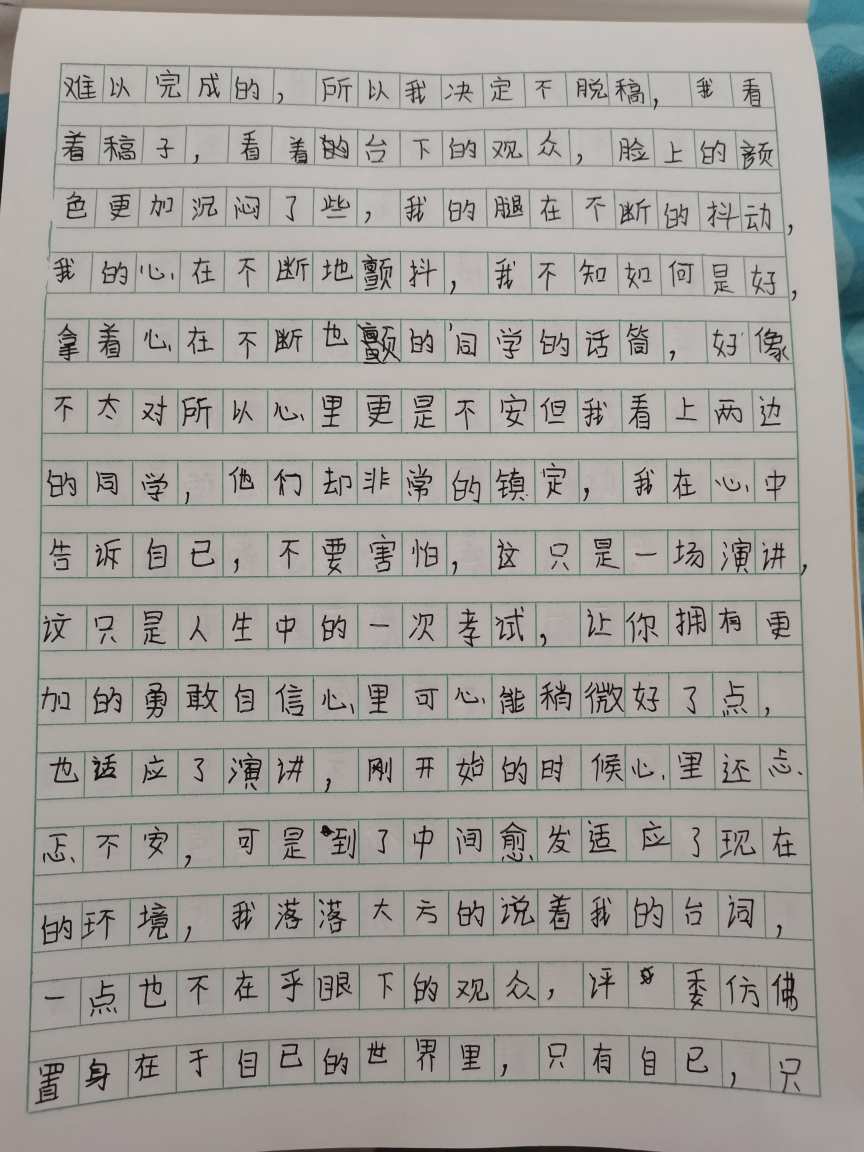 难以完成的，所以我决定不脱稿，我看
着稿子，看着的台下的观众，脸上的颜
色更加沉闷了些，我的腿在不断的抖动，
我的心在不断地颤抖，我不知如何是好，
拿着心在不断也颤的同学的话筒，好像
不太对所以心里更是不安但我看上两边
的同学，他们却非常的镇定，我在心中
告诉自己，不要害怕，这只是一场演讲，
这只是人生中的一次考试，让你拥有更
加的勇敢自信心里可心能稍微好了点，
也适应了演讲，刚开始的时候心里还忐
忑不安，可是到了中间愈发适应了现在
的环境，我落落大方的说着我的台词，
一点也不在乎眼下的观众，评委仿佛
置身在于自己的世界里，只有自己，只